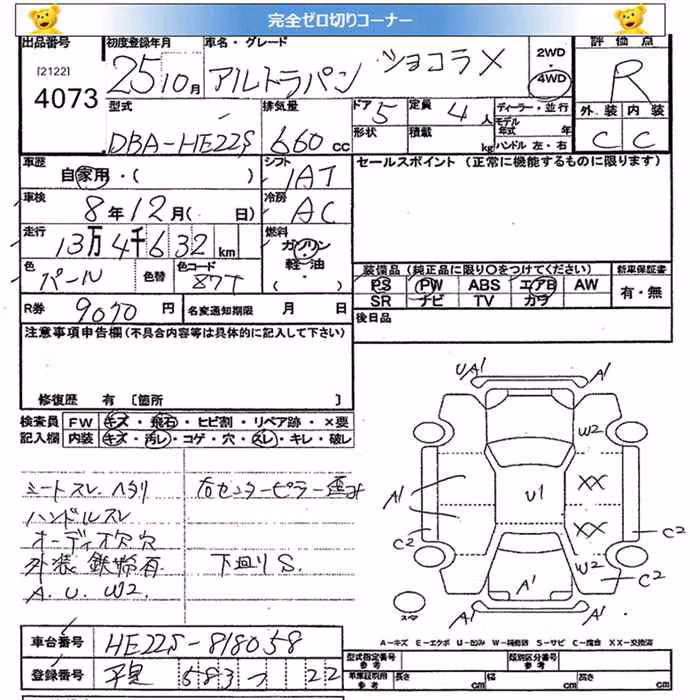 完全ゼロ切りコーナー
出品番号 初度登録年月 車名・グレード 2WD 評価点
[2122] 4073 25年10月 アルトラパン ショコラX 4WD R
型式 排気量 ドア 5 定員 4人 ディーラー・並行 外装 内装
DBA-HE22S 660 cc 形状 積載 kg モデル年式 年 C C
ハンドル 左・右
車歴 シフト セールスポイント (正常に機能するものに限ります)
自家用・( ) IAT
車検 冷房
8年12月( 日) AC
走行 燃料
13万4千632km ガソリン・軽・油
色 色替 色コード 装備品 (純正品に限り○をつけてください) 新車保証書
パール PS PW ABS エアB AW 有・無
SR ナビ TV カワ
R券 9070円 名変通知期限 月 日 後日品
注意事項申告欄(不具合内容等は具体的に記入して下さい)
修復歴 有 [箇所 ]
検査員 FW キズ・飛石・ヒビ割・リペア跡・×要
記入欄 内装 キズ・汚レ・コゲ・穴・スレ・キレ・破レ
シートスレ、ヘタリ 右センターピラー歪み
ハンドルスレ
オーディオ穴
外装 鉄 有 下廻りS.
A. U. W2.
UA1 A1
W2
XX
A1 U1
XX
C2 C2
W2
A1 C2
スペア A1 A1
A-キズ E-エクボ U-凹み W-補修跡 S-サビ C-腐食 XX-交換済
車台番号 HE22S-818058 型式指定番号 参考 類別区分番号 参考
登録番号 583 つ 22 車庫証明用 参考 長さ cm 幅 cm 高さ cm